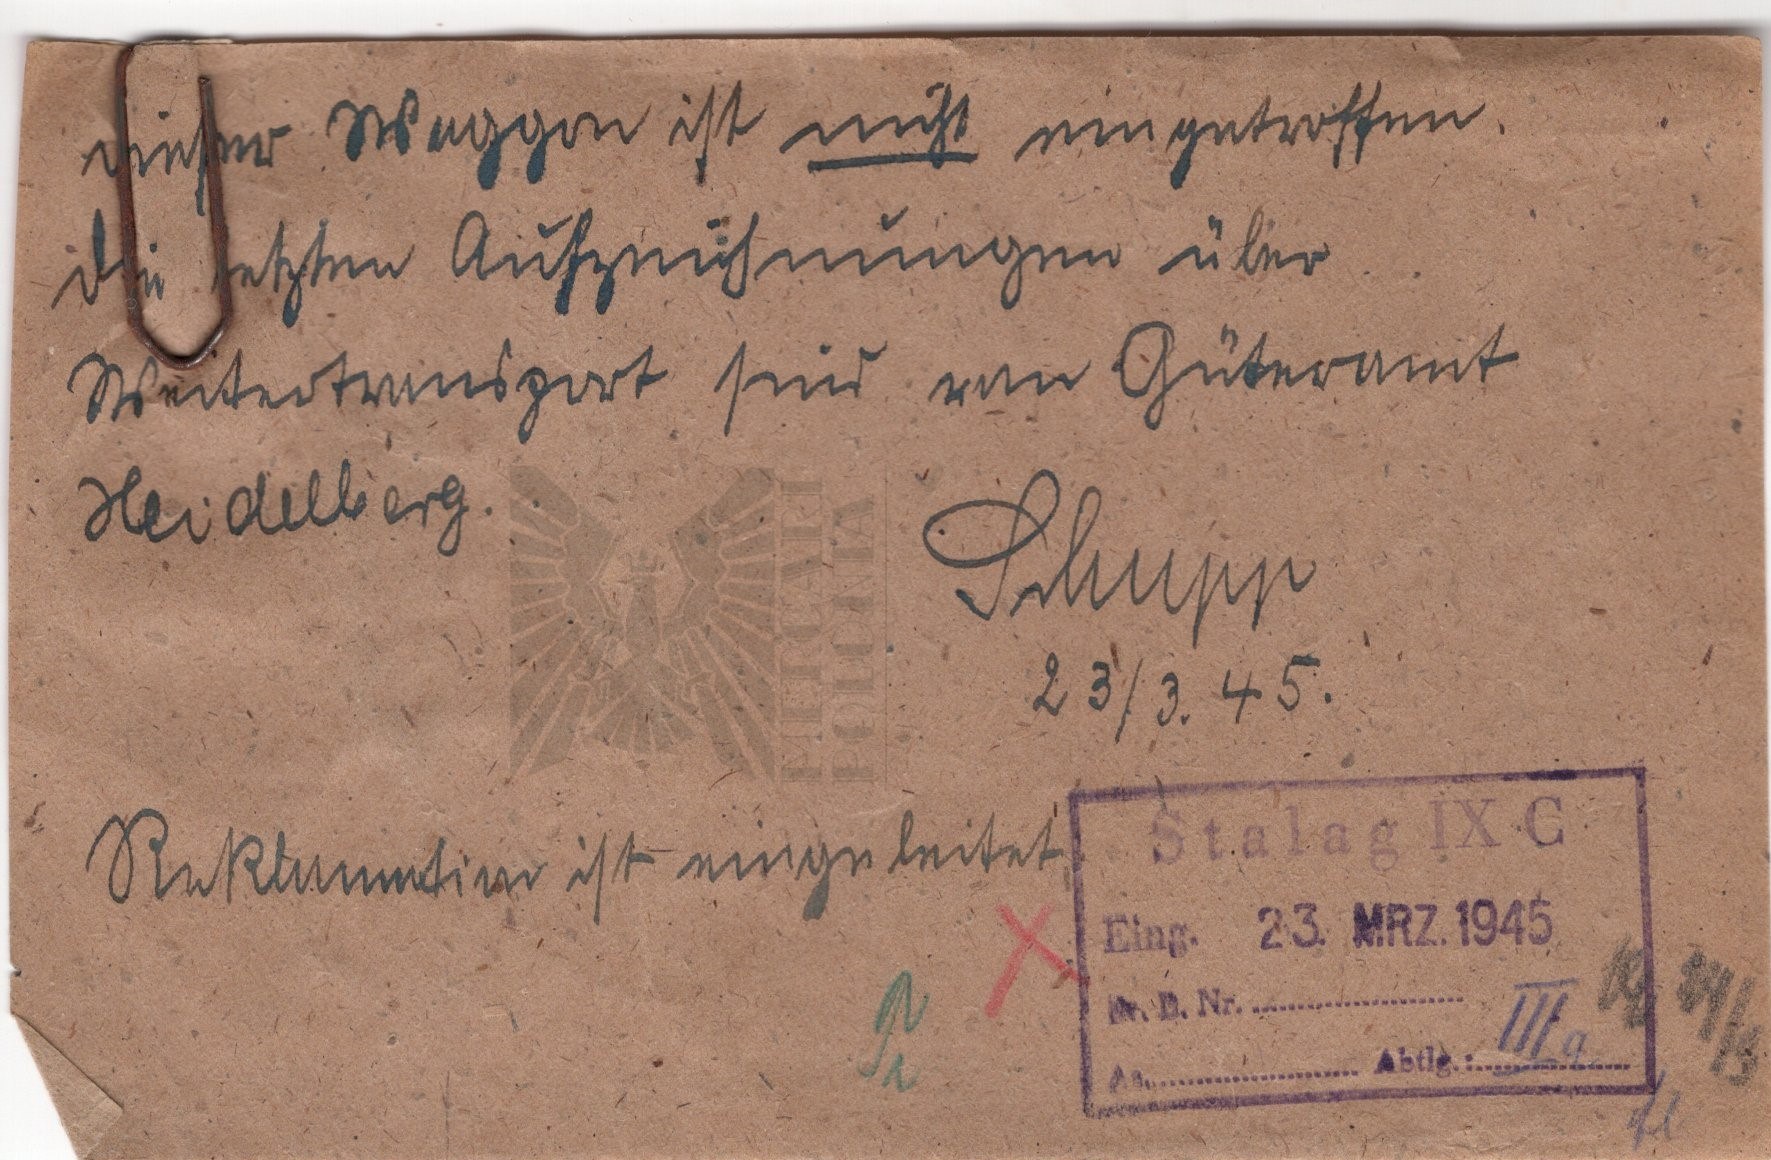 dieser Waggon ist nicht eingetroffen.
Die letzten Aufzeichnungen über
Weitertransport sind von Güteramt
Heidelberg.
Schupp
23/3.45.
Reklamation ist eingeleitet.
MERCATEL
POLONIA
Stalag IX C
Eing. 23. MRZ. 1945
Br. B. Nr. ....................
An. .................... Abtlg.: IIIa